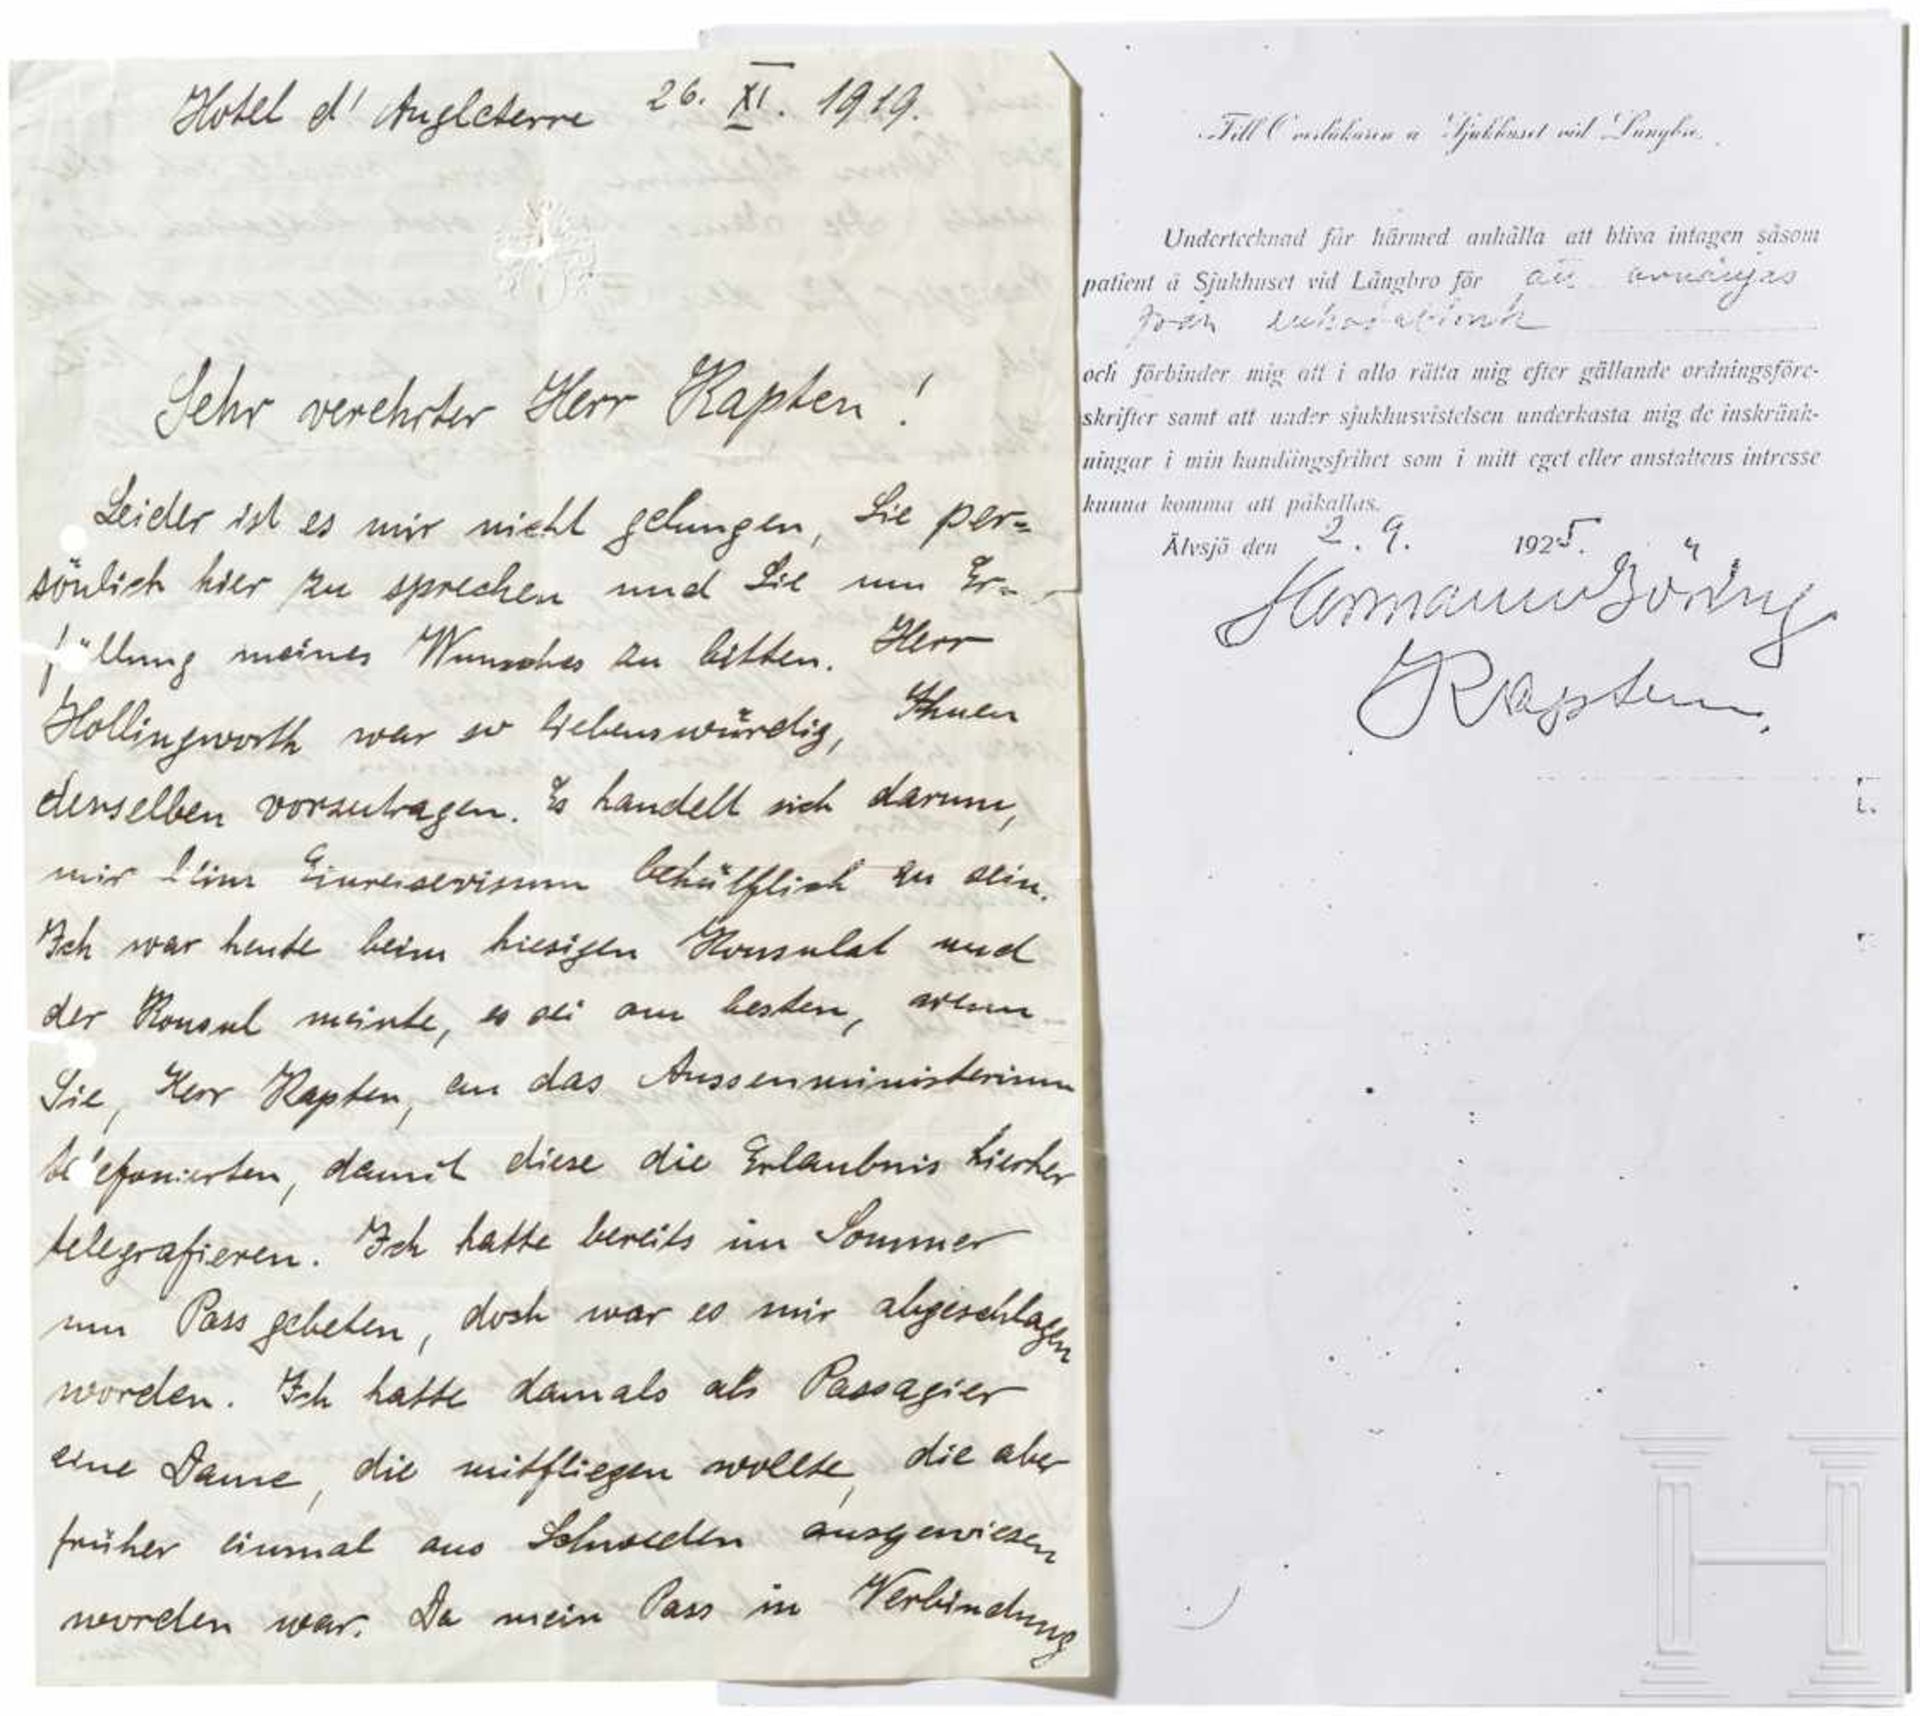 Hotel d'Angleterre 26. XI. 1919.
Sehr verehrter Herr Kapten!
Leider ist es mir nicht gelungen, Sie per=
sönlich hier zu sprechen und Sie um Er=
füllung meines Wunsches zu bitten. Herr
Hollingworth war so liebenswürdig, Ihnen
denselben vorzutragen. Es handelt sich darum,
mir beim Einreisevisum behülflich zu sein.
Ich war heute beim hiesigen Konsulat und
der Konsul meinte, es sei am besten, wenn
Sie, Herr Kapten, an das Aussenministerium
telefonierten, damit diese die Erlaubnis hierher
telegrafieren. Ich hatte bereits im Sommer
um Pass gebeten, doch war es mir abgeschlagen
worden. Ich hatte damals als Passagier
eine Dame, die mitfliegen wollte, die aber
früher einmal aus Schweden ausgewiesen
worden war. Da mein Pass in Verbindung
Till Överläkaren å Sjukhuset vid Långbro.
Undertecknad får härmed anhålla att bliva intagen såsom
patient å Sjukhuset vid Långbro för att avvänjas
från
och förbinder mig att i allo rätta mig efter gällande ordningsföre-
skrifter samt att under sjukhusvistelsen underkasta mig de inskränk-
ningar i min handlingsfrihet som i mitt eget eller anstaltens intresse
kunna komma att påkallas.
Älvsjö den 2. 9. 1925.
Hermann Göring
Kapten.
H